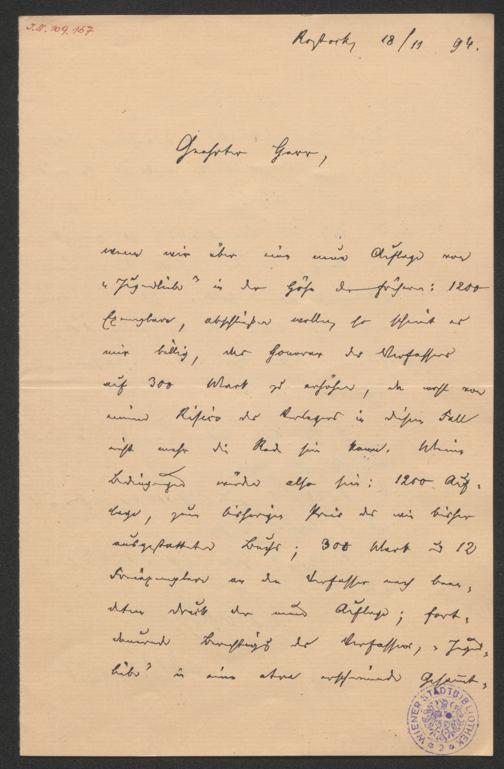 J.N. 109.167
Rostock, 18/11 94.
Geehrter Herr,
wenn wir über eine neue Auflage von
„Jugendliebe" in der Höhe der früheren: 1200
Exemplare, abschließen wollen, so scheint es
mir billig, das Honorar des Verfassers
auf 300 Mark zu erhöhen, da wohl von
einem Risico des Verlegers in diesem Fall
nicht mehr die Rede sein kann. Meine
Bedingungen würden also sein: 1200 Auf-
lage, zum bisherigen Preis des wie bisher
ausgestatteten Buchs; 300 Mark u. 12
Freiexemplare an den Verfasser nach been-
detem Druck der neuen Auflage; fort-
dauernde Berechtigung des Verfassers, „Jugend-
liebe" in eine etwa erscheinende Gesammt-
WIENER STADTBIBLIOTHEK